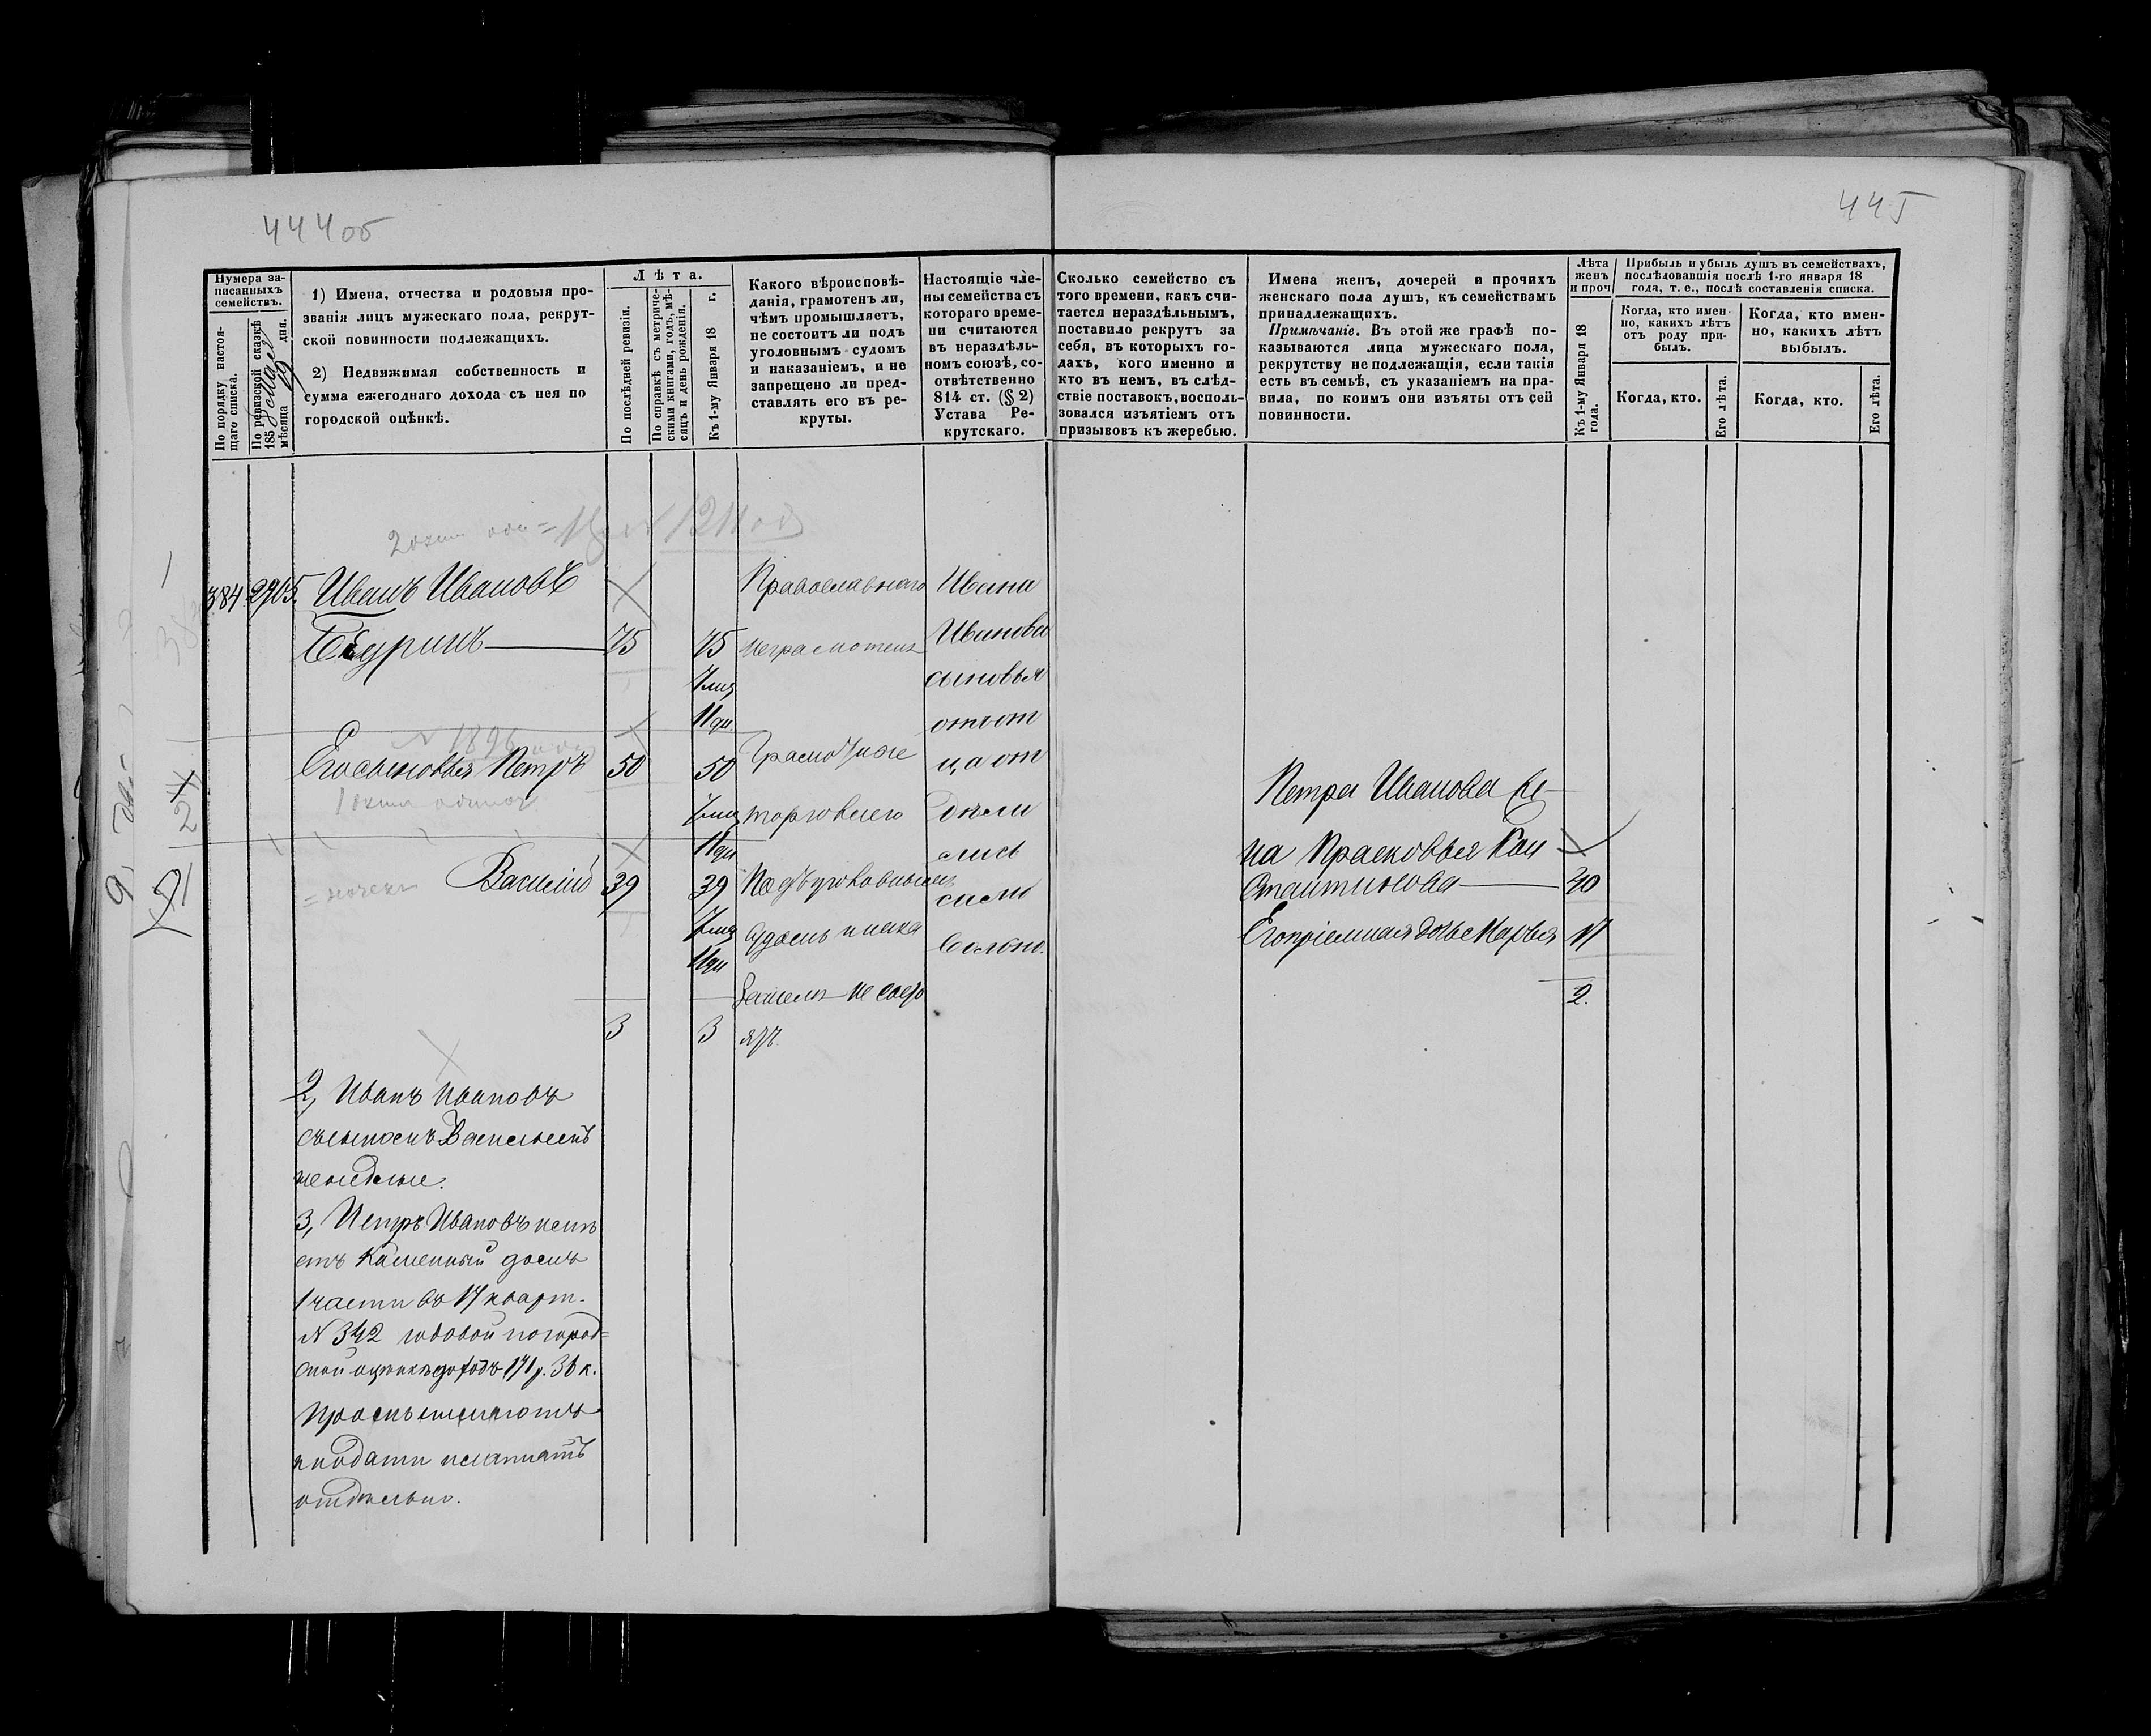 444 об
445
Нумера за-
писанныхъ
семействъ.
По порядку настоя-
щаго списка.
По ревизской сказкѣ
185 мая
мѣсяца 19 дня.
1) Имена, отчества и родовыя про-
званія лицъ мужескаго пола, рекрут-
ской повинности подлежащихъ.
2) Недвижимая собственность и
сумма ежегоднаго дохода съ нея по
городской оцѣнкѣ.
Лѣта.
По послѣдней ревизіи.
По справкѣ съ метриче-
скими книгами, годъ, мѣ-
сяцъ и день рожденія.
Къ 1-му Января 18 г.
Какого вѣроисповѣ-
данія, грамотенъ ли,
чѣмъ промышляетъ,
не состоитъ ли подъ
уголовнымъ судомъ
и наказаніемъ, и не
запрещено ли пред-
ставлять его въ ре-
круты.
Настоящіе чле-
ны семейства съ
котораго време-
ни считаются
въ нераздѣль-
номъ союзѣ, со-
отвѣтственно
814 ст. (§ 2)
Устава Ре-
крутскаго.
Сколько семейство съ
того времени, какъ счи-
тается нераздѣльнымъ,
поставило рекрутъ за
себя, въ которыхъ го-
дахъ, кого именно и
кто въ немъ, въ слѣд-
ствіе поставокъ, восполь-
зовался изъятіемъ отъ
призывовъ къ жеребью.
Имена женъ, дочерей и прочихъ
женскаго пола душъ, къ семействамъ
принадлежащихъ.
Примѣчаніе. Въ этой же графѣ по-
казываются лица мужескаго пола,
рекрутству не подлежащія, если такія
есть въ семьѣ, съ указаніемъ на пра-
вила, по коимъ они изъяты отъ сей
повинности.
Лѣта
женъ
и проч
Къ 1-му Января 18
года.
Прибыль и убыль душъ въ семействахъ,
послѣдовавшія послѣ 1-го января 18
года, т. е., послѣ составленія списка.
Когда, кто имен-
но, какихъ лѣтъ
отъ роду при-
былъ.
Когда, кто имен-
но, какихъ лѣтъ
выбылъ.
Когда, кто.
Его лѣта.
Когда, кто.
Его лѣта.
384 2905. Иванъ Ивановъ
75 75
7 мц
11 дн.
Его сыновья Петръ 50 50
7 мц
11 дн
Василій 39 39
7 мц
11 дн
3 3
Православнаго
неграмотенъ
торговлею
судомъ и нака
заніемъ не состо
ятъ.
Ивана
Иванова
сыновья
отъ от
ца от
дѣли
лись
само
вольно.
Петра Иванова же
на Прасковья Кон
стантинова 40
Его пріемная дочь Марья 17
2.
2, Иванъ Ивановъ
съ сыномъ Васильемъ
3, Петръ Ивановъ имѣ
етъ каменный домъ
1 части въ 17 кварт.
N 342 годовой по город=
ской оцѣнкѣ доходъ 171 р. 36 к.
и подати платятъ
отдѣльно.